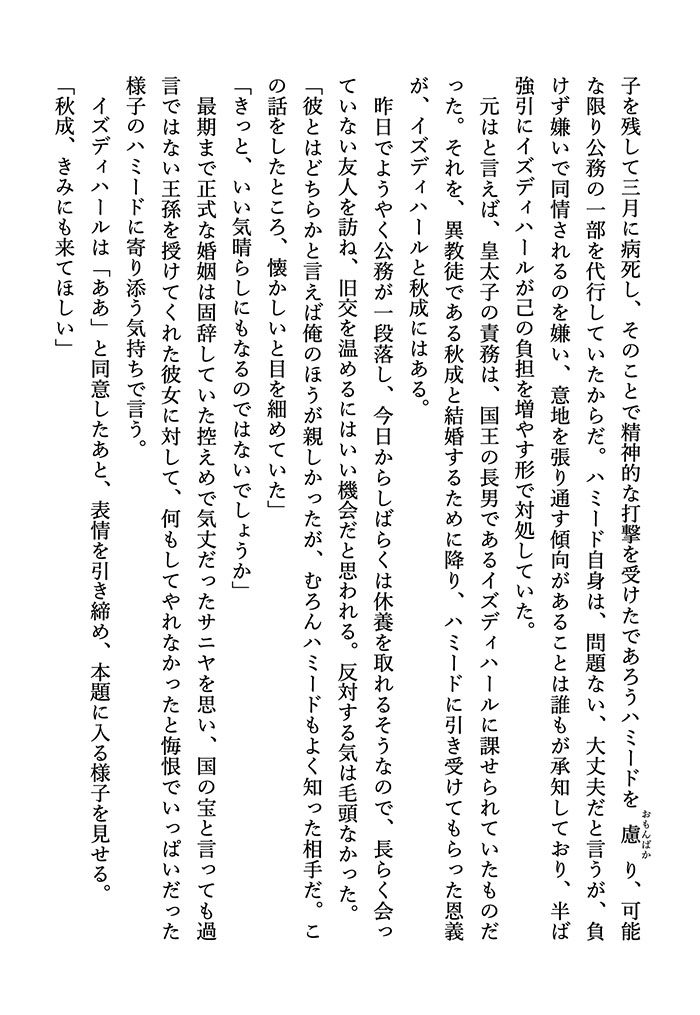 子を残して三月に病死し、そのことで精神的な打撃を受けたであろうハミードを慮り、可能
おもんぱか
な限り公務の一部を代行していたからだ。ハミード自身は、問題ない、大丈夫だと言うが、負
けず嫌いで同情されるのを嫌い、意地を張り通す傾向があることは誰もが承知しており、半ば
強引にイズディハールが己の負担を増やす形で対処していた。
元はと言えば、皇太子の責務は、国王の長男であるイズディハールに課せられていたものだ
った。それを、異教徒である秋成と結婚するために降り、ハミードに引き受けてもらった恩義
が、イズディハールと秋成にはある。
昨日でようやく公務が一段落し、今日からしばらくは休養を取れるそうなので、長らく会っ
ていない友人を訪ね、旧交を温めるにはいい機会だと思われる。反対する気は毛頭なかった。
「彼とはどちらかと言えば俺のほうが親しかったが、むろんハミードもよく知った相手だ。こ
の話をしたところ、懐かしいと目を細めていた」
「きっと、いい気晴らしにもなるのではないでしょうか」
最期まで正式な婚姻は固辞していた控えめで気丈だったサニヤを思い、国の宝と言っても過
言ではない王孫を授けてくれた彼女に対して、何もしてやれなかったと悔恨でいっぱいだった
様子のハミードに寄り添う気持ちで言う。
イズディハールは「ああ」と同意したあと、表情を引き締め、本題に入る様子を見せる。
「秋成、きみにも来てほしい」